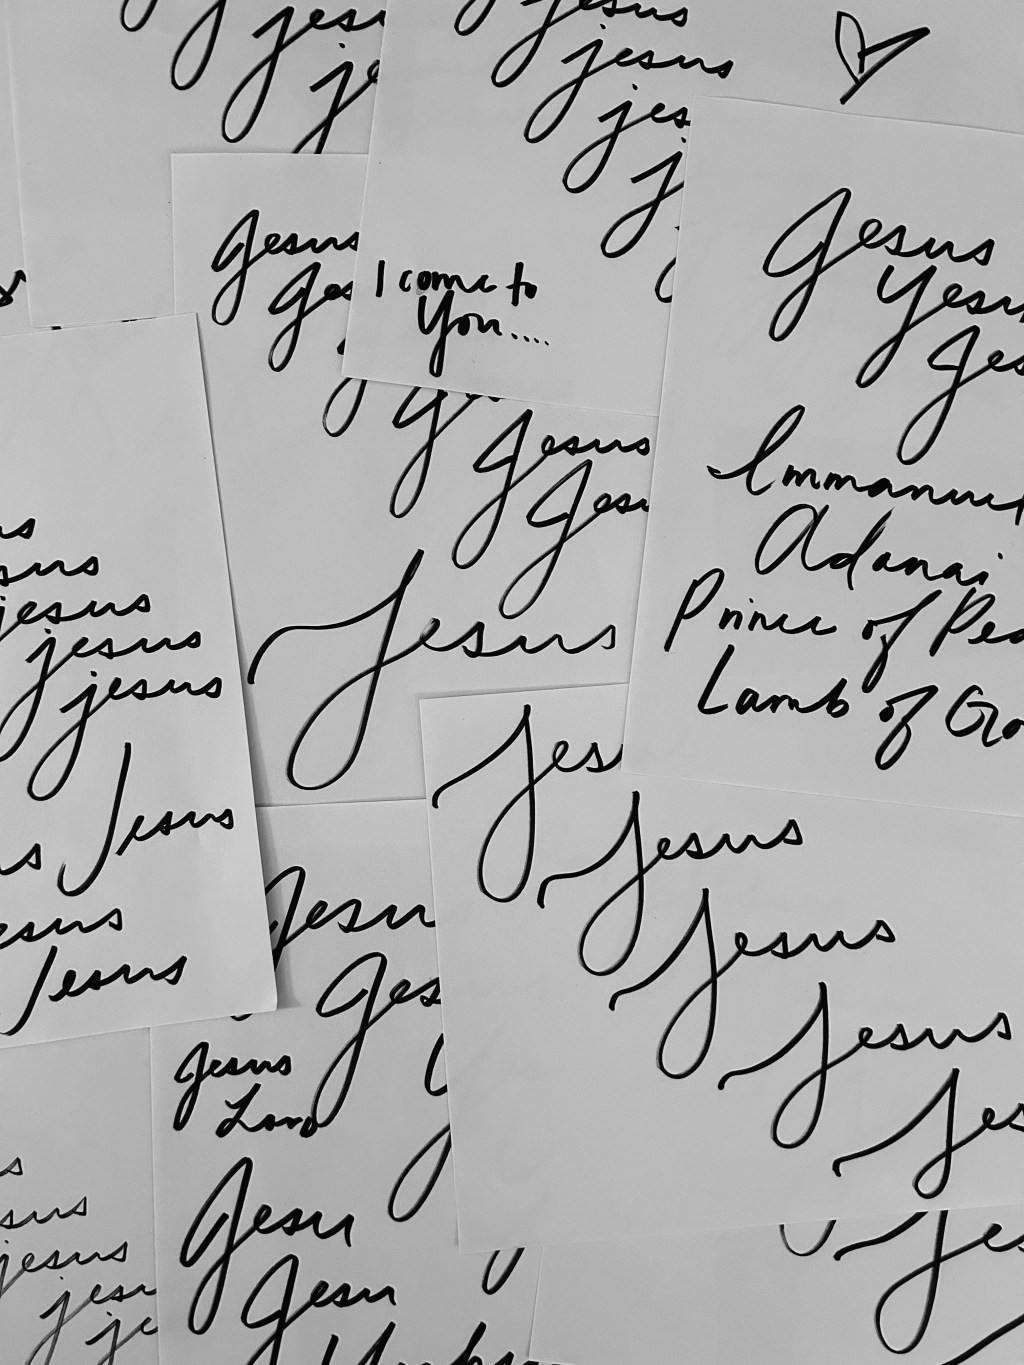 jesus
jesus
jesus
Jesus
Yesu
Jes
Immanuel
Adonai
Prince of Pea
Lamb of Go
Jesus
Jes
I come to
You....
Jesus
Jesu
Jesus
sus
jesus
jesus
jesus
Jesus
esus
Jesus
Jes
Jesus
Jesus
Jesus
Jes
Jesu
Jes
Jesus
Lord
Jesu
Jesu
sus
jesus
jesu
je
Je